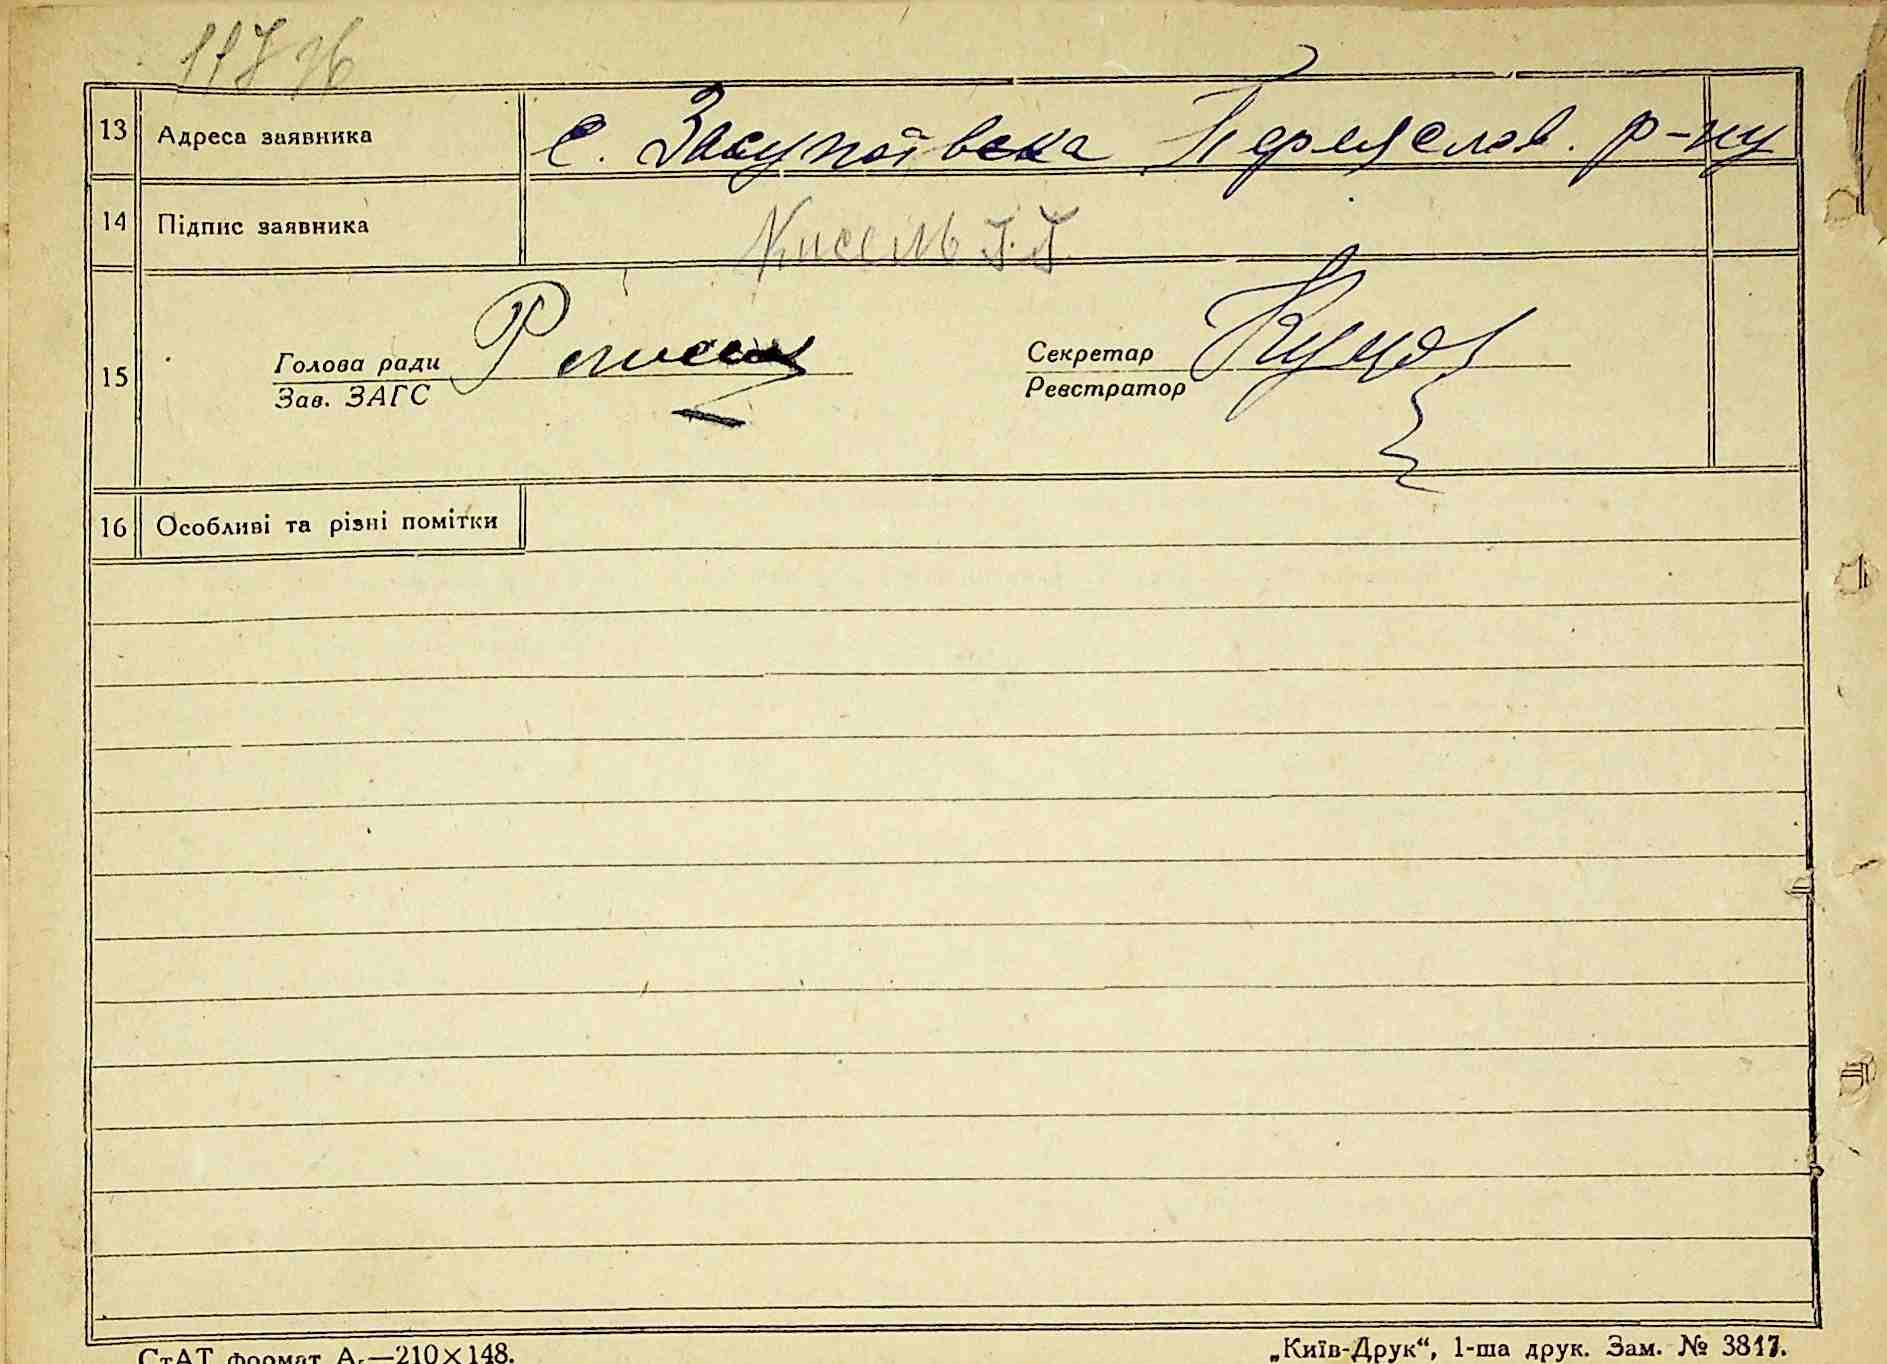 13 Адреса заявника с. Засупоївска Переяслав. р-ну
14 Підпис заявника Кисель Г. Г.
15 Голова ради Секретар
Зав. ЗАГС Реєстратор
16 Особливі та різні помітки
СтАТ формат А₅—210×148. „Київ-Друк“, 1-ша друк. Зам. № 3817.